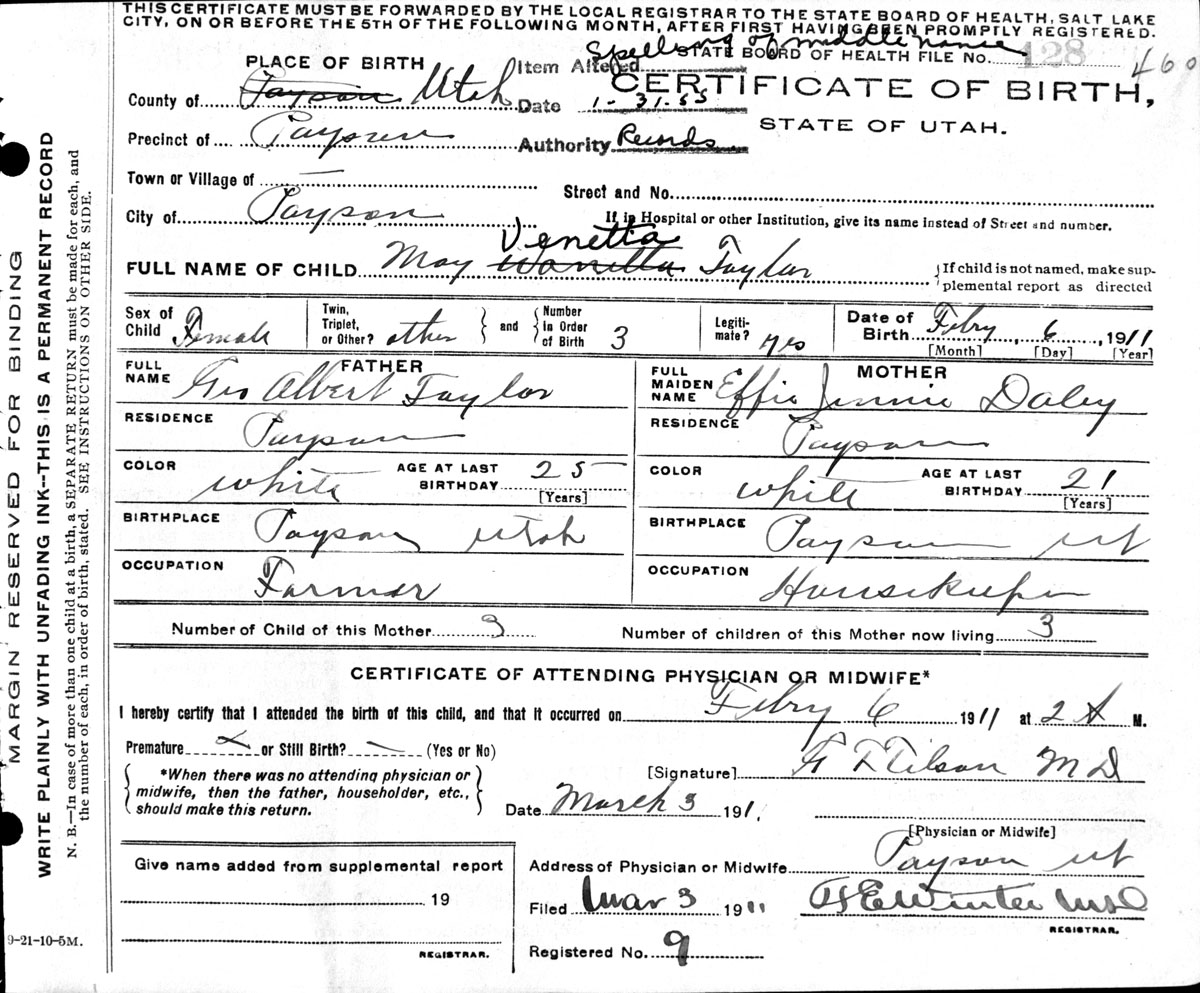 THIS CERTIFICATE MUST BE FORWARDED BY THE LOCAL REGISTRAR TO THE STATE BOARD OF HEALTH, SALT LAKE
CITY, ON OR BEFORE THE 5TH OF THE FOLLOWING MONTH, AFTER FIRST HAVING BEEN PROMPTLY REGISTERED.
Spelling of middle name
PLACE OF BIRTH Item Altered STATE BOARD OF HEALTH FILE NO. 128 460
County of Payson Utah Date 1-31-55 CERTIFICATE OF BIRTH,
STATE OF UTAH.
Precinct of Payson Authority Records
Town or Village of — Street and No.
City of Payson If in Hospital or other Institution, give its name instead of Street and number.
Venetta
FULL NAME OF CHILD May Wanetta Taylor {If child is not named, make sup-
plemental report as directed
Sex of Child Female Twin, Triplet, or Other? other } and { Number in Order of Birth 3 Legiti-mate? yes Date of Birth Febry 6, 1911
[Month] [Day] [Year]
FATHER MOTHER
FULL NAME Geo Albert Taylor FULL MAIDEN NAME Effie Jennie Daley
RESIDENCE Payson RESIDENCE Payson
COLOR white AGE AT LAST BIRTHDAY 25 [Years] COLOR white AGE AT LAST BIRTHDAY 21 [Years]
BIRTHPLACE Payson Utah BIRTHPLACE Payson Ut
OCCUPATION Farmer OCCUPATION Housekeeper
Number of Child of this Mother 3 Number of children of this Mother now living 3
CERTIFICATE OF ATTENDING PHYSICIAN OR MIDWIFE*
I hereby certify that I attended the birth of this child, and that it occurred on Febry 6 1911 at 2 A M.
Premature or Still Birth? — (Yes or No)
*When there was no attending physician or
midwife, then the father, householder, etc.,
should make this return.
[Signature] Tilson M D
Date March 3 1911
[Physician or Midwife]
Give name added from supplemental report
19
REGISTRAR.
Address of Physician or Midwife Payson Ut
Filed Mar 3 1911 Winter M D
REGISTRAR.
Registered No. 9
9-21-10-5M.
MARGIN RESERVED FOR BINDING
WRITE PLAINLY WITH UNFADING INK--THIS IS A PERMANENT RECORD
N. B.—In case of more than one child at a birth, a SEPARATE RETURN must be made for each, and
the number of each, in order of birth, stated. SEE INSTRUCTIONS ON OTHER SIDE.